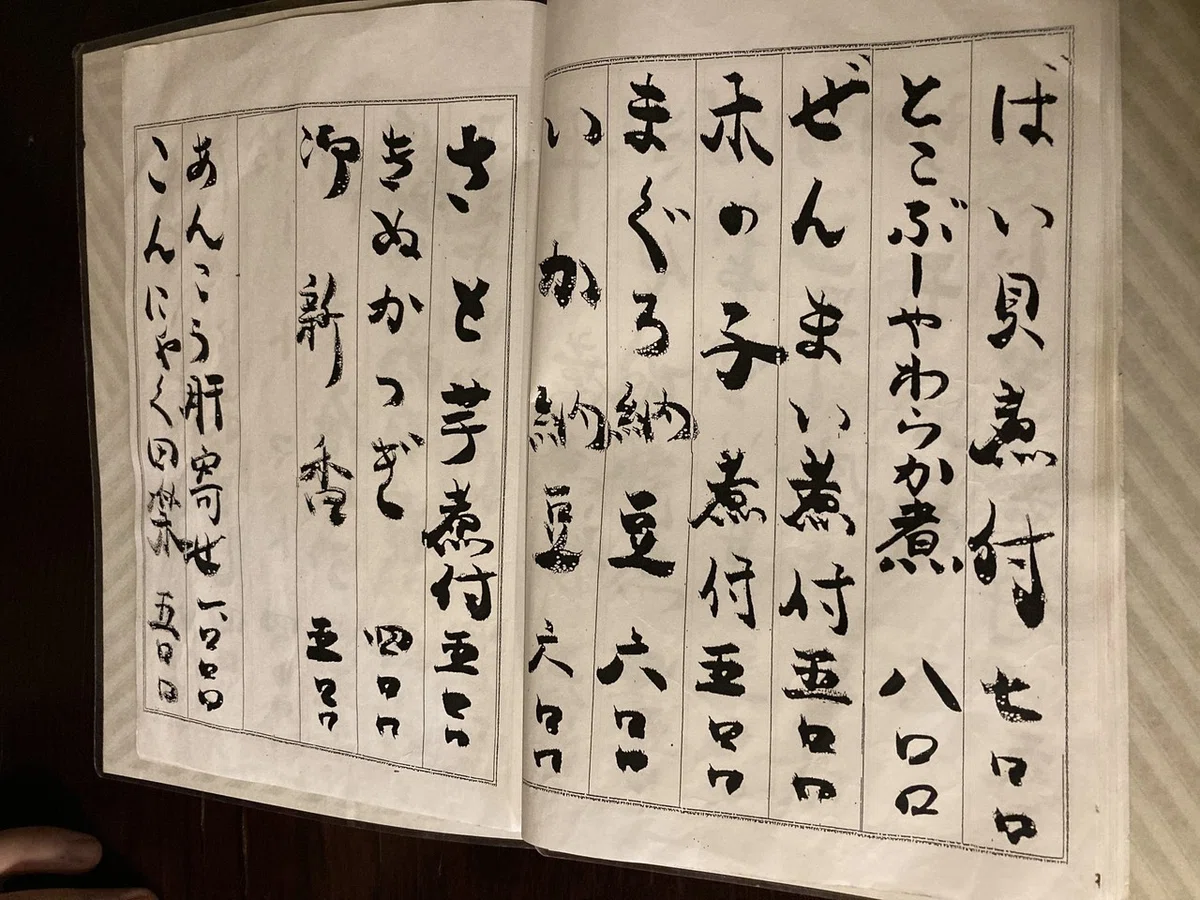 ばい貝煮付 七〇〇
とこぶしやわらか煮 八〇〇
ぜんまい煮付 五〇〇
木の子煮付 五〇〇
まぐろ納豆 六〇〇
いか納豆 六〇〇
さと芋煮付 五〇〇
きぬかつぎ 四〇〇
御新香 五〇〇
あんこう肝寄せ 一、〇〇〇
こんにゃく田楽 五〇〇